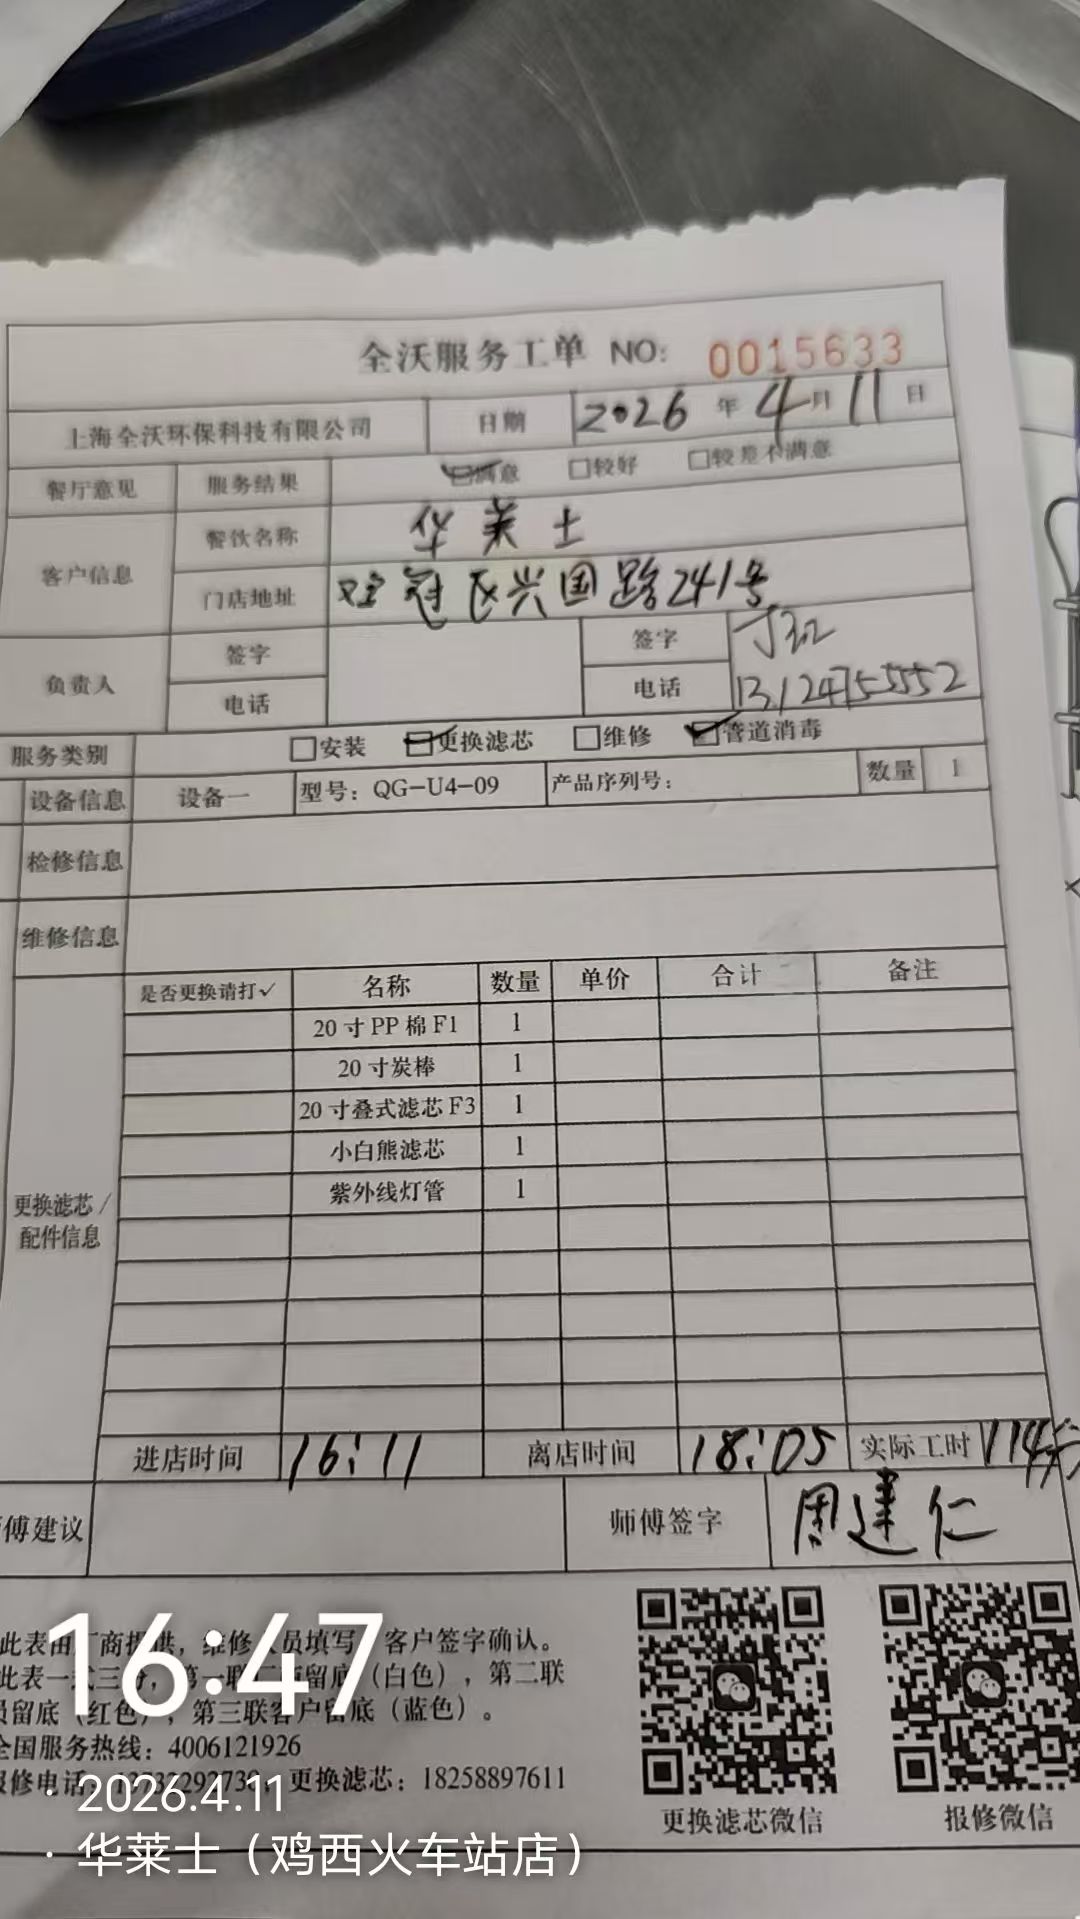 全沃服务工单 NO: 0015633
上海全沃环保科技有限公司 日期 2026 年 4 月 11 日
餐厅意见 服务结果 满意 较好 较差不满意
客户信息 餐饮名称 华莱士
门店地址 冠区兴国路241号
负责人 签字 签字
电话 电话 13124755552
服务类别 安装 更换滤芯 维修 管道消毒
设备信息 设备一 型号：QG-U4-09 产品序列号： 数量 1
检修信息
维修信息
是否更换请打✓ 名称 数量 单价 合计 备注
20寸PP棉F1 1
20寸炭棒 1
20寸叠式滤芯F3 1
小白熊滤芯 1
紫外线灯管 1
更换滤芯/
配件信息
进店时间 16:11 离店时间 18:05 实际工时 114分
傅建议 师傅签字 周建仁
此表由厂商提供，维修人员填写，客户签字确认。
此表一式三份，第一联厂商留底（白色），第二联
员留底（红色），第三联客户留底（蓝色）。
全国服务热线：4006121926
报修电话： 更换滤芯：18258897611
更换滤芯微信 报修微信
16:47
· 2026.4.11
· 华莱士（鸡西火车站店）